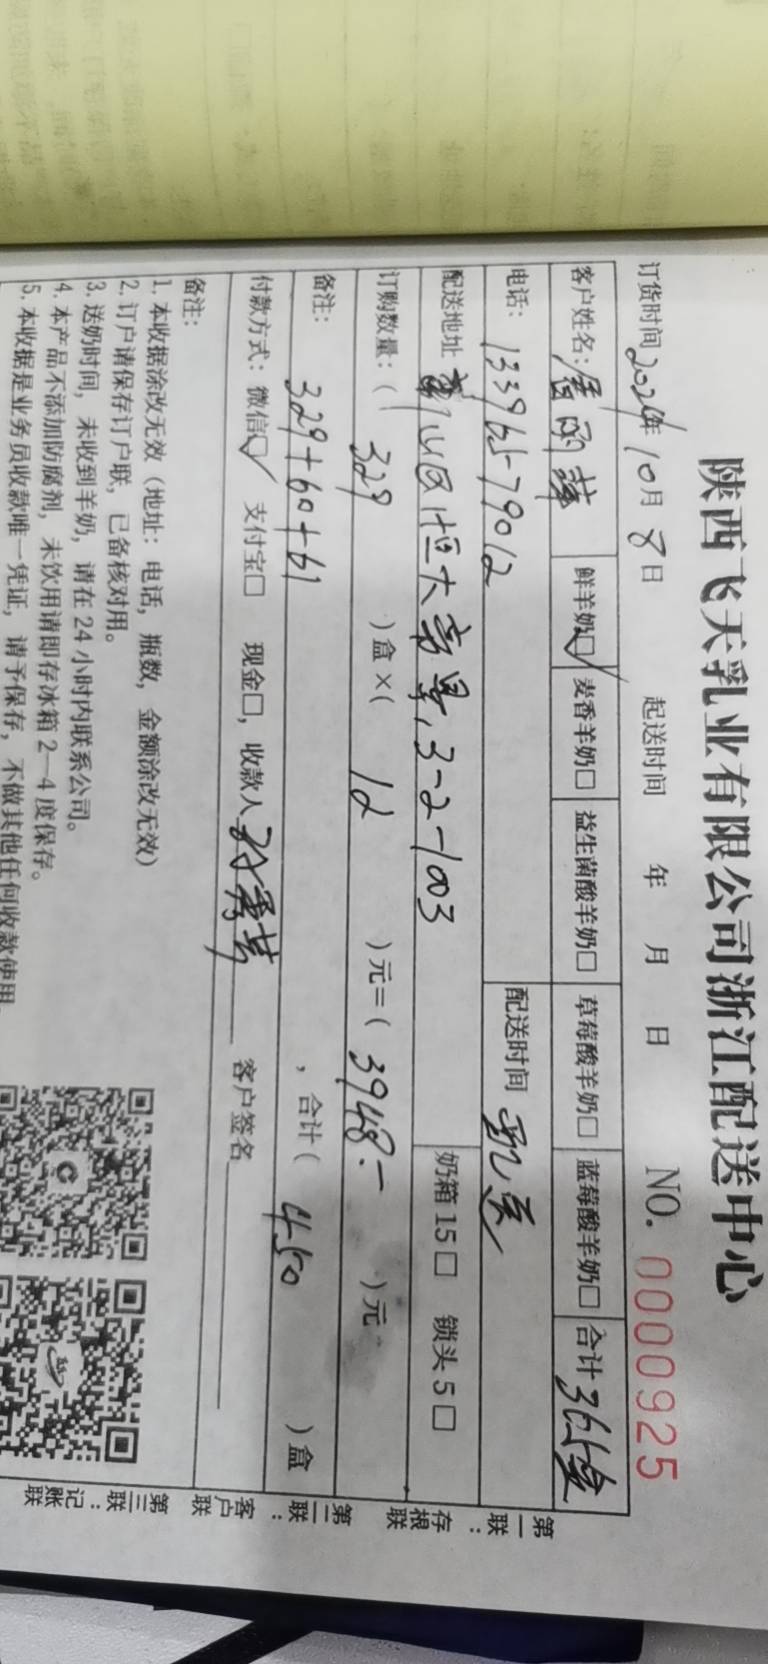 陕西飞天乳业有限公司浙江配送中心
订货时间2024年10月8日 起送时间 年 月 日 NO. 0000925
客户姓名: 鲜羊奶☑ 麦香羊奶□ 益生菌酸羊奶□ 草莓酸羊奶□ 蓝莓酸羊奶□ 合计365盒
电话: 13396579012 配送时间
配送地址 山区恒大帝景,3-2-1003 奶箱15□ 锁头5□
订购数量:( 329 )盒×( 12 )元=( 3948.- )元
备注: 329+60+61 ,合计( 450 )盒
付款方式: 微信☑ 支付宝□ 现金□, 收款人 客户签名
备注:
1. 本收据涂改无效(地址: 电话, 瓶数, 金额涂改无效)
2. 订户请保存订户联, 已备核对用。
3. 送奶时间, 未收到羊奶, 请在24小时内联系公司。
4. 本产品不添加防腐剂, 未饮用请即存冰箱2—4度保存。
5. 本收据是业务员收款唯一凭证, 请予保存, 不做其他任何收款使用
第一联: 存根联
第二联: 客户联
第三联: 记账联